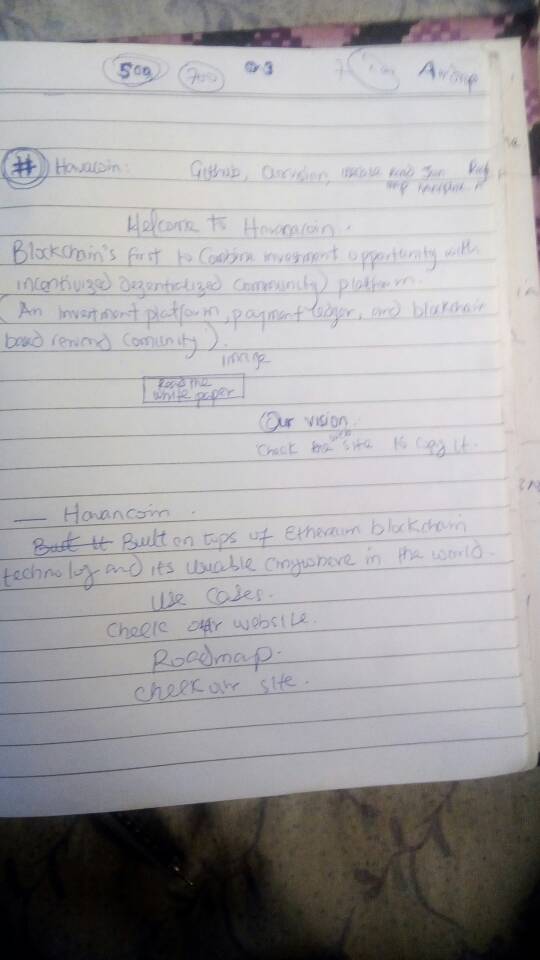 500 700
# Havacoin: Github, Our vision,
Welcome to Havancoin.
Blockchain's first to Combine investment opportunity with
incentivized Dezentralized Community) platform.
(An investment platform, payment ledger, and blockchain
based reward Comunity).
image
Read the
white paper
Our vision.
Check the web site to copy it.
— Havancoin.
Built on tops of Ethereum blockchain
technology and its usuable anywhere in the world.
Use Cases.
Check our website.
Roadmap.
Check our site.